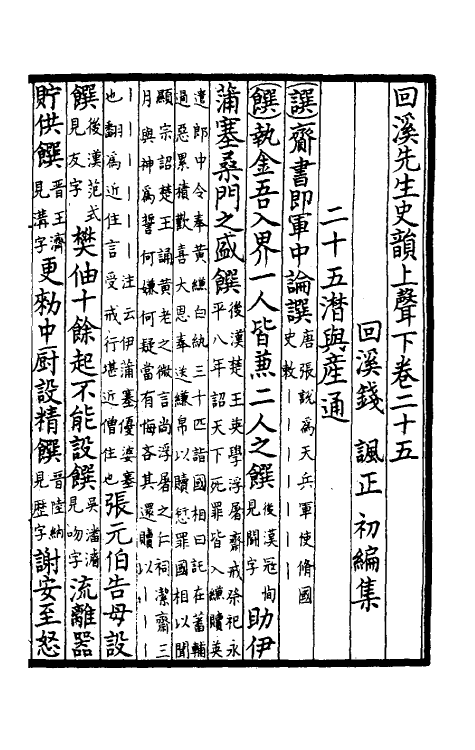 回溪先生史韻上聲下卷二十五
回溪錢 諷正 初編集
二十五潸與產通
譔 齎書即軍中論譔 唐張說爲天兵軍使脩國史敕｜｜｜｜｜｜
饌 執金吾入界一人皆兼二人之饌 後漢寇恂見關字 助伊
蒲塞桑門之盛饌 後漢楚王英學浮屠齋戒祭祀永平八年詔天下死罪皆入縑贖英
遣郎中令奉黃縑白紈三十匹詣國相曰託在蕃輔過惡累積歡喜大恩奉送縑帛以贖愆罪國相以聞
顯宗詔楚王誦黃老之微言尚浮屠之仁祠潔齋三月與神爲誓何嫌何疑當有悔吝其還贖以｜｜
｜｜｜｜｜｜｜注云伊蒲塞優婆塞也翻爲近住言受戒行堪近僧住也 張元伯告母設
饌 後漢范式見友字 樊伷十餘起不能設饌 吳潘濬見吻字 流離器
貯供饌 晉王濟見溝字 更勑中厨設精饌 晉陸納見歷字 謝安至怒